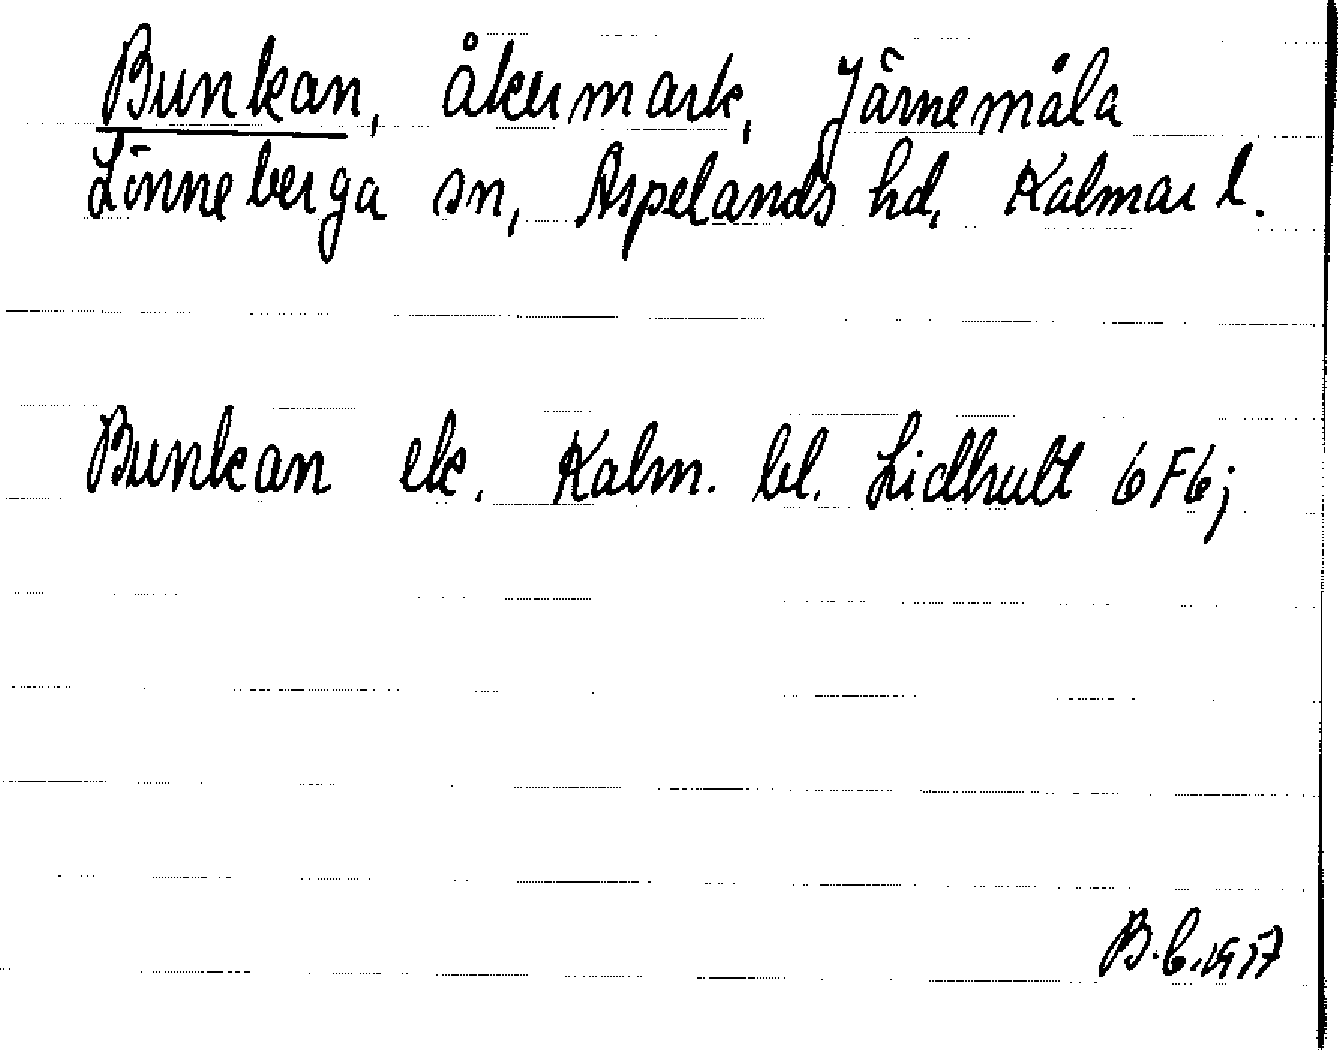 Bunkan, åkermark, Järnemåla
Lönneberga sn, Aspelands hd, Kalmar l.
Bunkan ek. Kalm. bl. Lidhult 6F6;
B.b. 1957